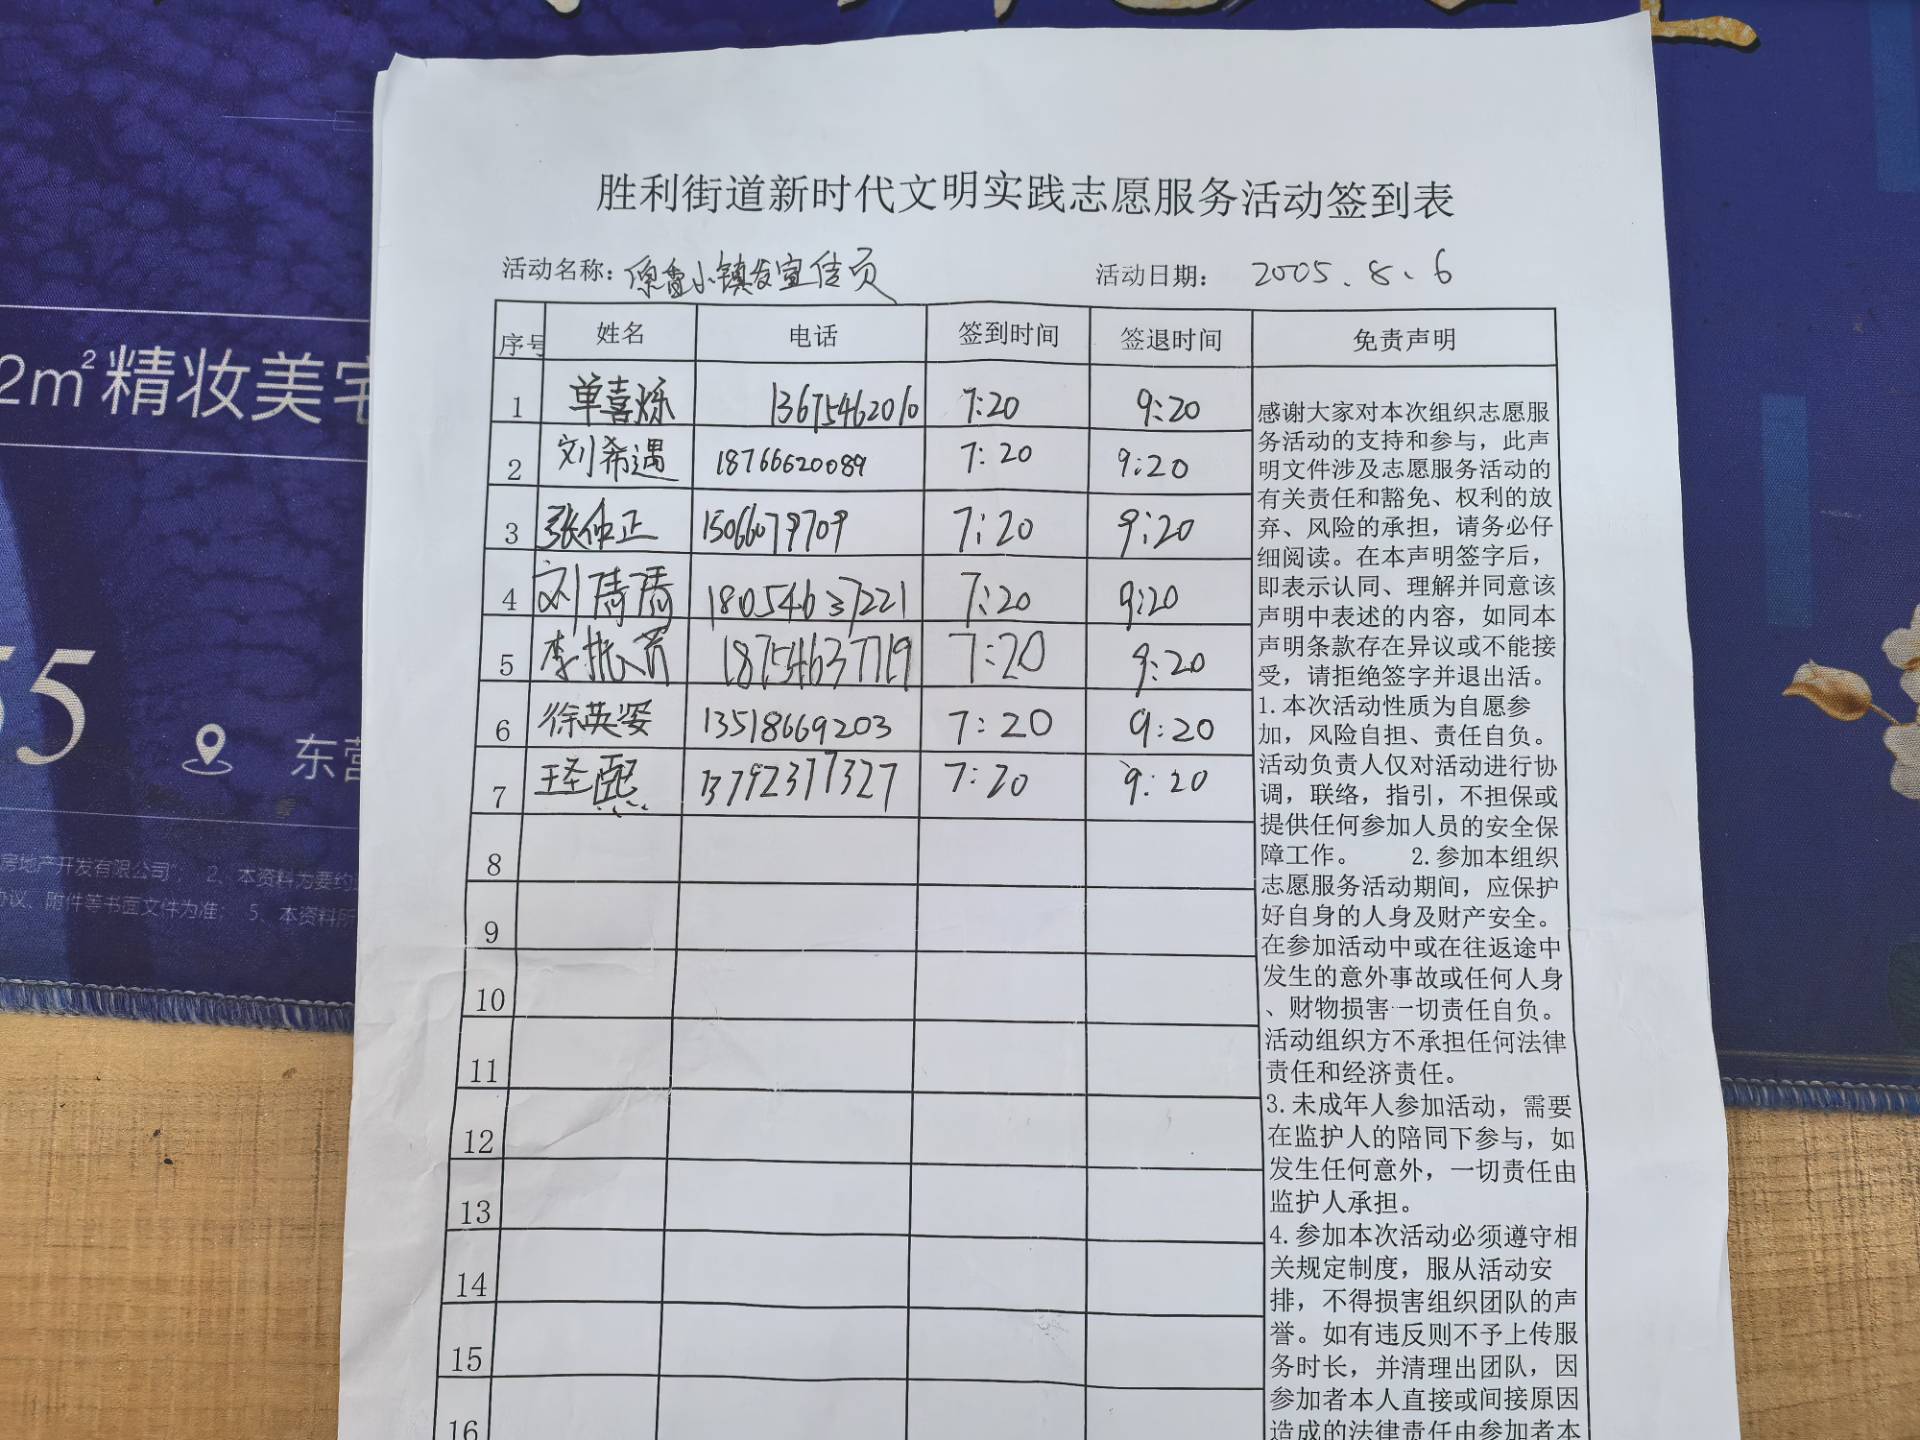 2m²精妆美宅
55
东营
房地产开发有限公司"; 2、本资料为要约
协议、附件等书面文件为准; 5、本资料所
胜利街道新时代文明实践志愿服务活动签到表
活动名称: 小镇发宣传页 活动日期: 2005.8.6
序号 姓名 电话 签到时间 签退时间 免责声明
1 单喜烁 13675462010 7:20 9:20
2 刘希遇 18766620089 7:20 9:20
3 张仲正 15066079709 7:20 9:20
4 刘倩倩 18054637221 7:20 9:20
5 李振 18754637719 7:20 9:20
6 徐英姿 13518669203 7:20 9:20
7 王圣熙 13792377327 7:20 9:20
8
9
10
11
12
13
14
15
16
感谢大家对本次组织志愿服
务活动的支持和参与,此声
明文件涉及志愿服务活动的
有关责任和豁免、权利的放
弃、风险的承担,请务必仔
细阅读。在本声明签字后,
即表示认同、理解并同意该
声明中表述的内容,如同本
声明条款存在异议或不能接
受,请拒绝签字并退出活。
1.本次活动性质为自愿参
加,风险自担、责任自负。
活动负责人仅对活动进行协
调,联络,指引,不担保或
提供任何参加人员的安全保
障工作。 2.参加本组织
志愿服务活动期间,应保护
好自身的人身及财产安全。
在参加活动中或在往返途中
发生的意外事故或任何人身
、财物损害一切责任自负。
活动组织方不承担任何法律
责任和经济责任。
3.未成年人参加活动,需要
在监护人的陪同下参与,如
发生任何意外,一切责任由
监护人承担。
4.参加本次活动必须遵守相
关规定制度,服从活动安
排,不得损害组织团队的声
誉。如有违反则不予上传服
务时长,并清理出团队,因
参加者本人直接或间接原因
造成的法律责任由参加者本